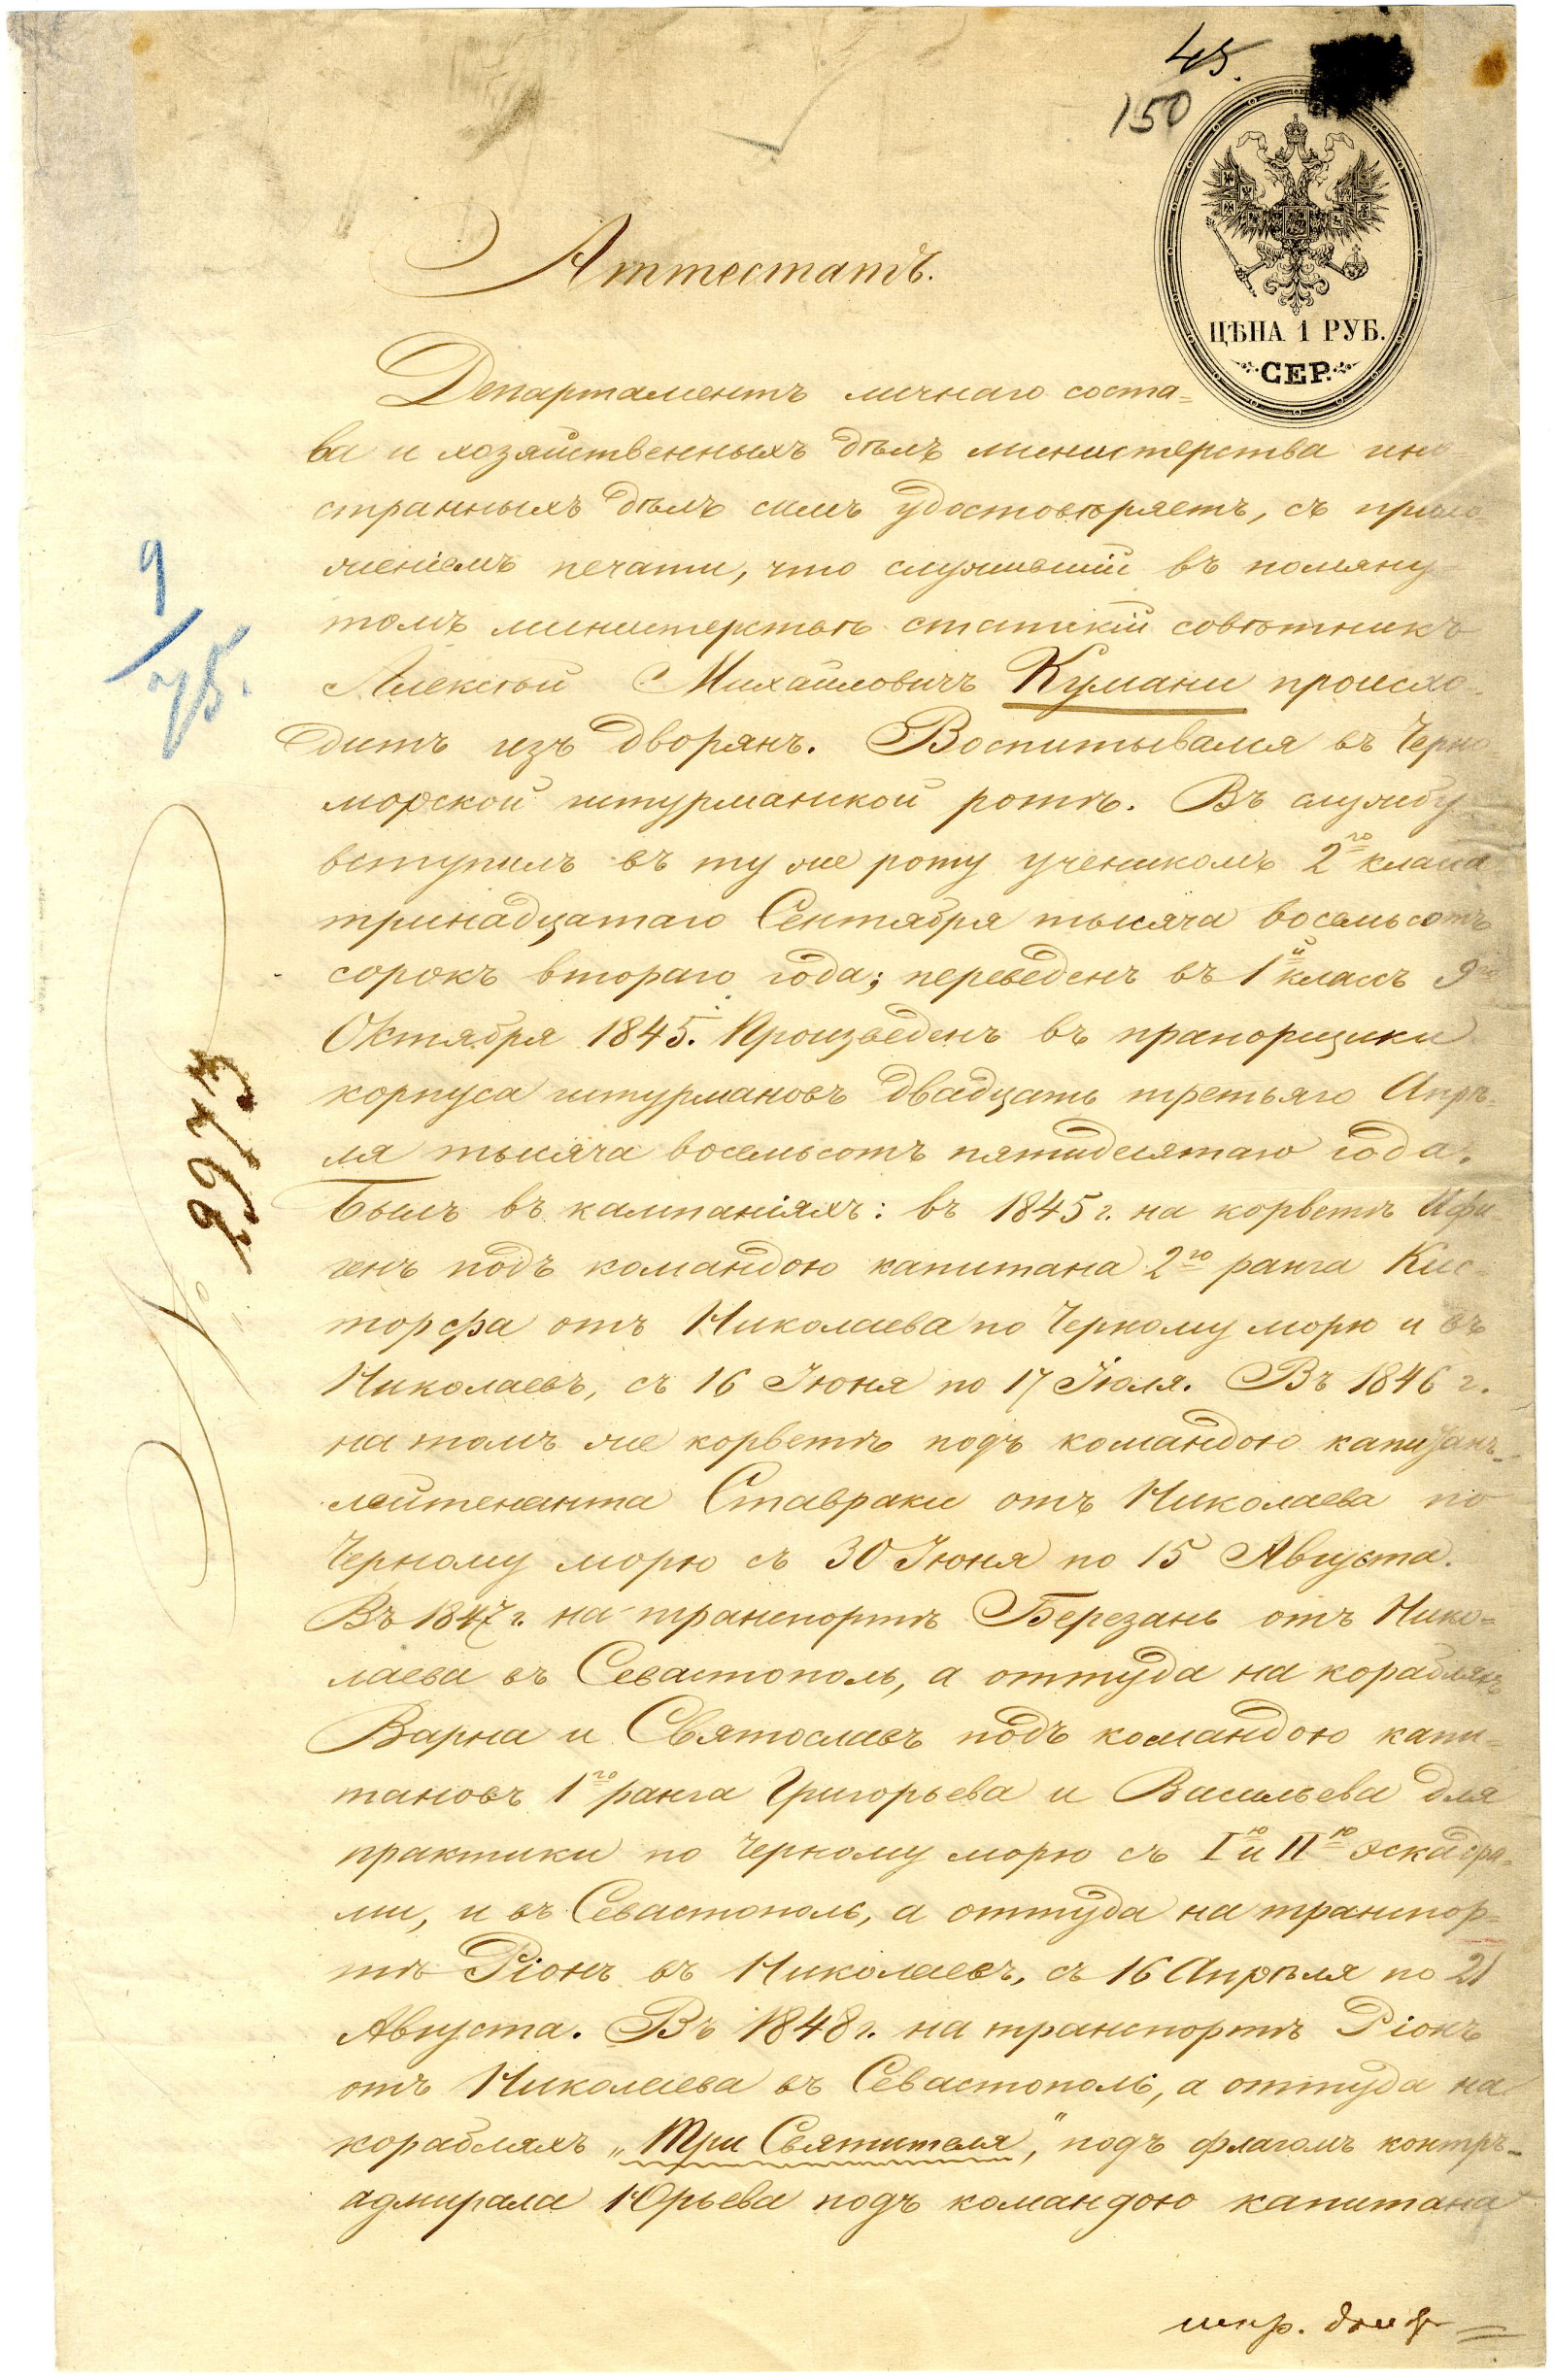 45.
150
ЦѢНА 1 РУБ.
СЕР.
Аттестатъ.
Департаментъ личнаго соста=
ва и хозяйственныхъ дѣлъ министерства ино-
странныхъ дѣлъ симъ удостовѣряетъ, съ прило-
женіемъ печати, что служившій въ помяну-
томъ министерствѣ статскій совѣтникъ
Алексѣй Михайловичъ Кумани происхо-
дитъ изъ дворянъ. Воспитывался въ Черно
морской штурманской ротѣ. Въ службу
вступилъ въ ту же роту ученикомъ 2го класса
тринадцатаго Сентября тысяча восемьсотъ
сорокъ втораго года; переведенъ въ 1й классъ 9го
Октября 1845. Произведенъ въ прапорщики
корпуса штурмановъ двадцать третьяго Апрѣ-
ля тысяча восемьсотъ пятидесятаго года.
Былъ въ кампаніяхъ: въ 1845 г. на корветѣ Ифи-
генъ подъ командою капитана 2го ранга Кис-
торфа отъ Николаева по Черному морю и въ
Николаевъ, съ 16 Іюня по 17 Іюля. Въ 1846 г.
на томъ же корветѣ подъ командою капитанъ-
лейтенанта Ставраки отъ Николаева по
Черному морю съ 30 Іюня по 15 Августа.
Въ 1847 г. на транспортѣ Березань отъ Нико-
лаева въ Севастополь, а оттуда на корабляхъ
Варна и Святославъ подъ командою капи-
тановъ 1го ранга Григорьева и Васильева для
практики по Черному морю съ Iю и IIю эскадра-
ми, и въ Севастополь, а оттуда на транспор-
тѣ Ріонъ въ Николаевъ, съ 16 Апрѣля по 21
Августа. Въ 1848 г. на транспортѣ Ріонъ
отъ Николаева въ Севастополь, а оттуда на
корабляхъ „Три Святителя," подъ флагомъ контръ-
адмирала Юрьева подъ командою капитана
9/75.
№ 2973